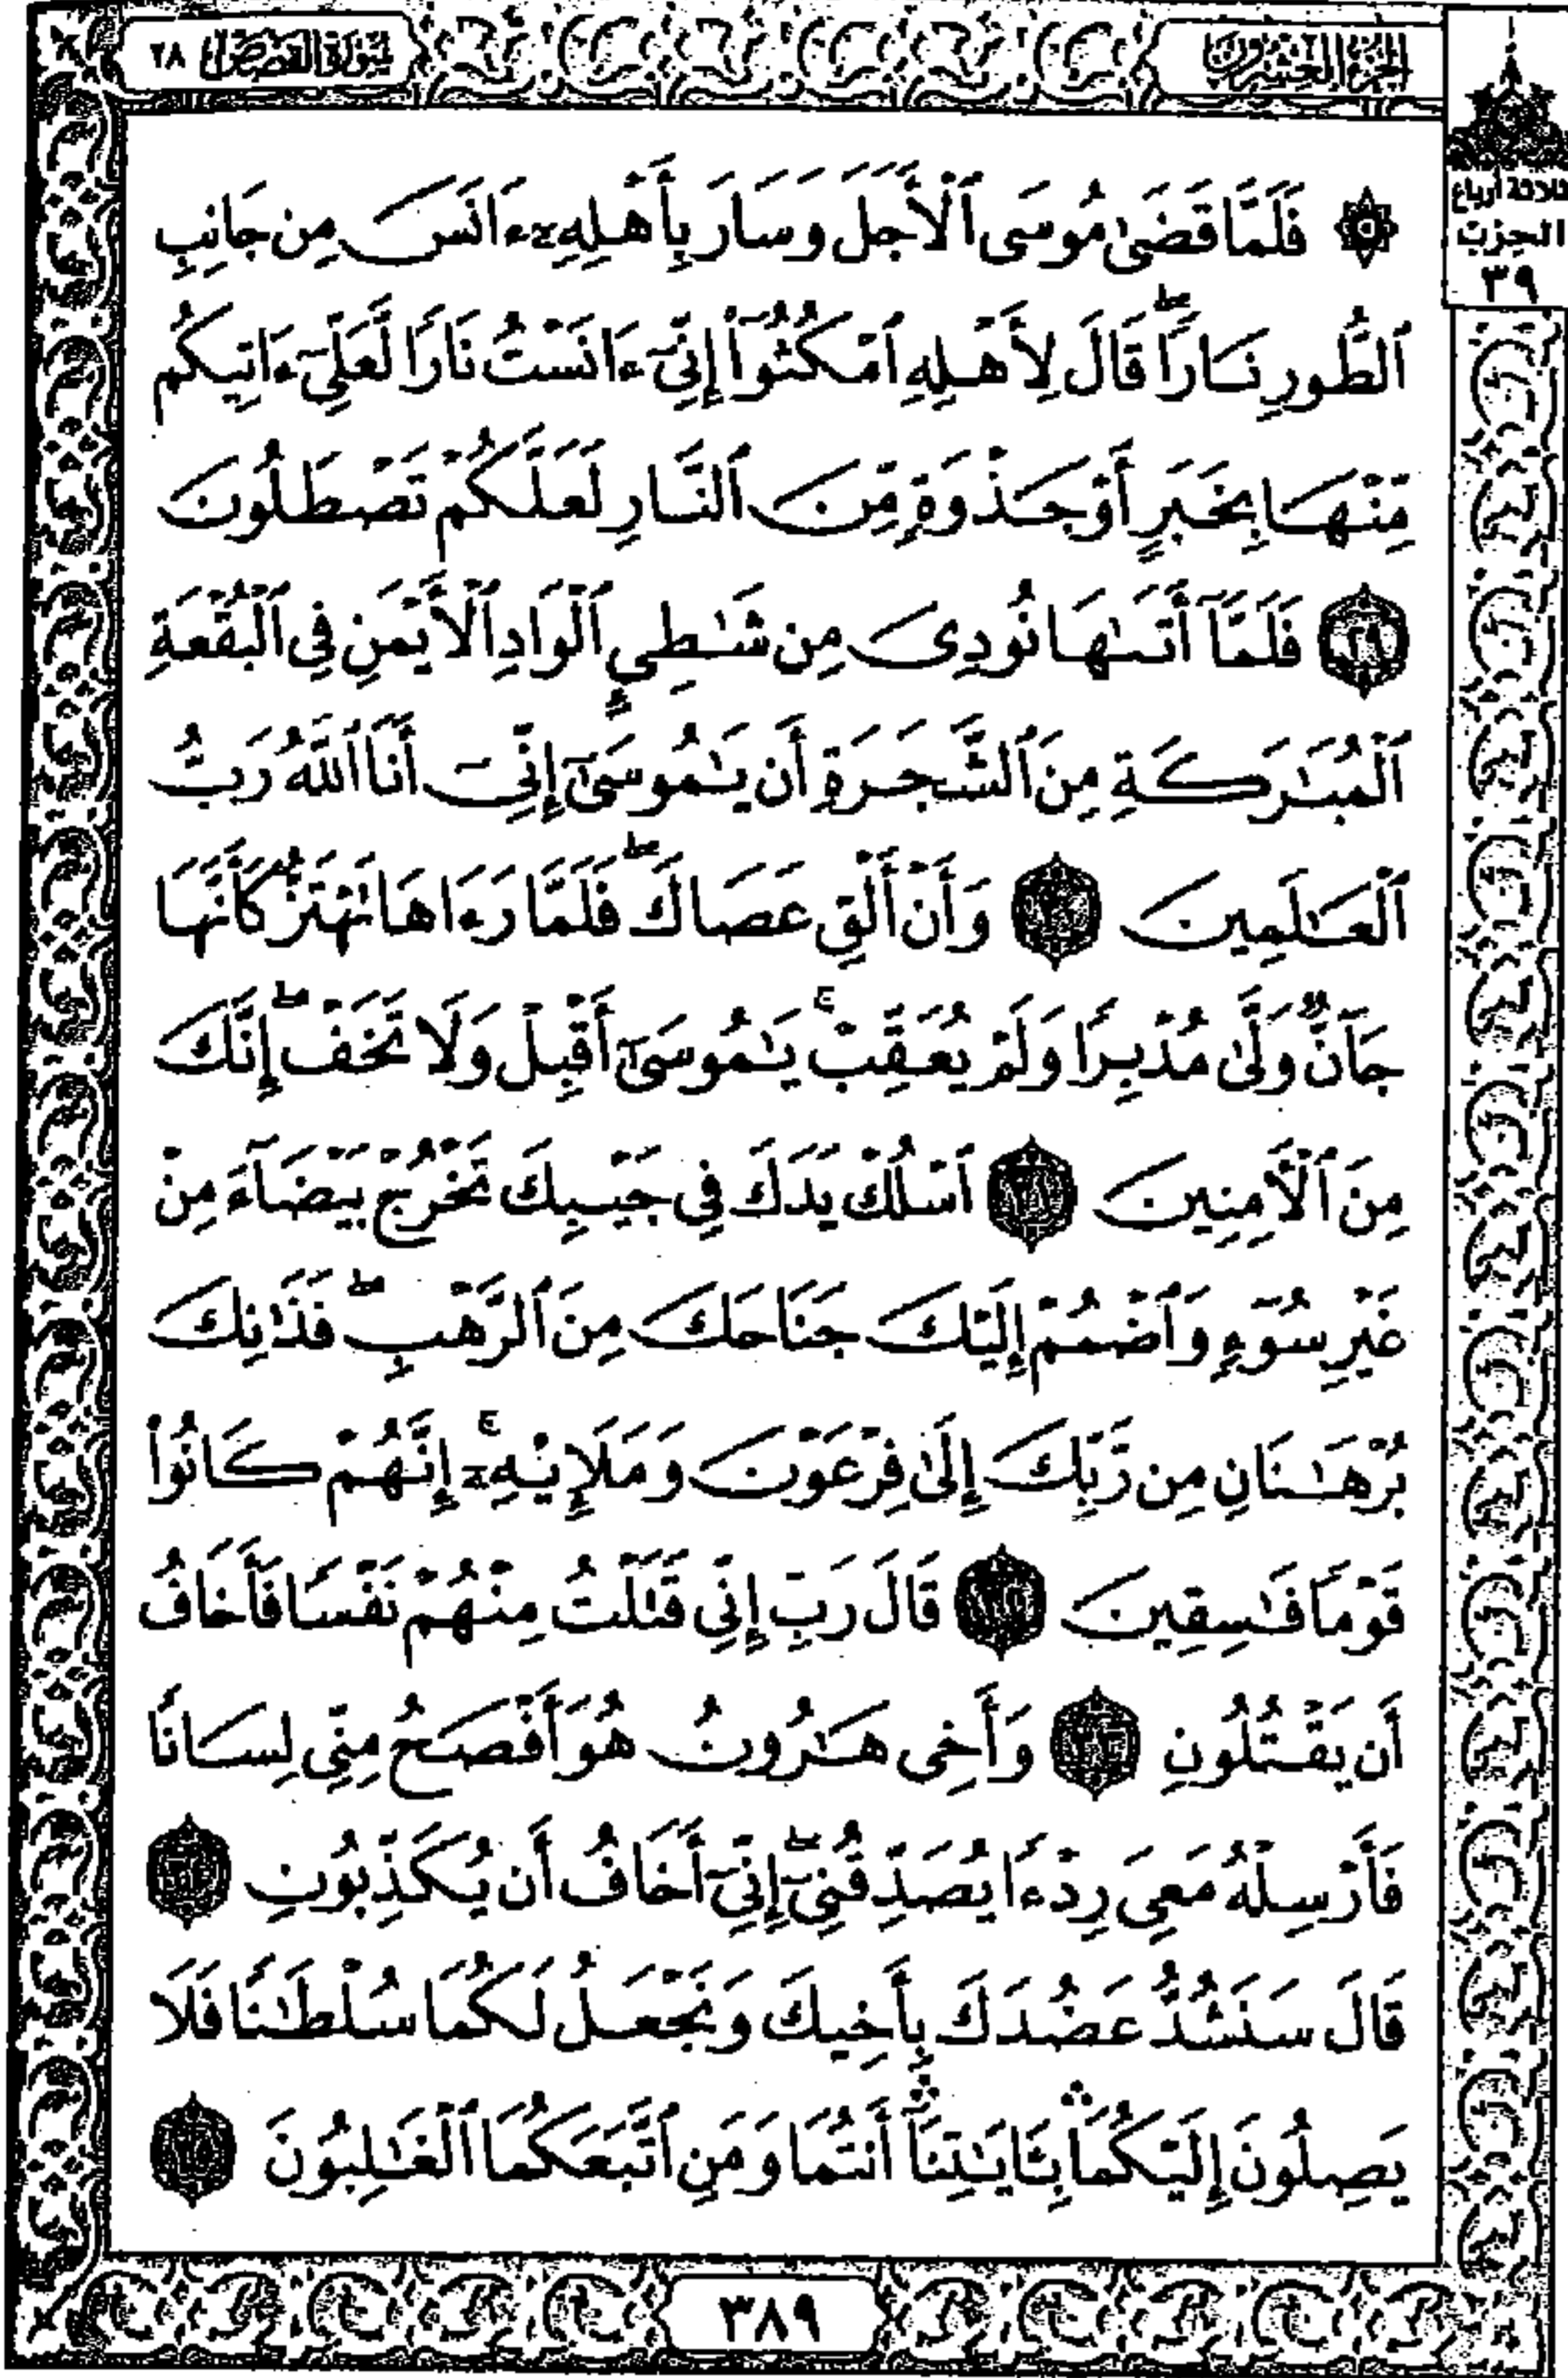 سورة القصص ٢٨
الجزء العشرون
ثلاثة أرباع
الحزب
٣٩
۞ فَلَمَّا قَضَىٰ مُوسَى ٱلْأَجَلَ وَسَارَ بِأَهْلِهِۦٓ ءَانَسَ مِن جَانِبِ
ٱلطُّورِ نَارًاۖ قَالَ لِأَهْلِهِ ٱمْكُثُوٓا۟ إِنِّىٓ ءَانَسْتُ نَارًا لَّعَلِّىٓ ءَاتِيكُم
مِّنْهَا بِخَبَرٍ أَوْ جَذْوَةٍ مِّنَ ٱلنَّارِ لَعَلَّكُمْ تَصْطَلُونَ
﴿٢٩﴾ فَلَمَّآ أَتَىٰهَا نُودِىَ مِن شَـٰطِئِ ٱلْوَادِ ٱلْأَيْمَنِ فِى ٱلْبُقْعَةِ
ٱلْمُبَـٰرَكَةِ مِنَ ٱلشَّجَرَةِ أَن يَـٰمُوسَىٰٓ إِنِّىٓ أَنَا ٱللَّهُ رَبُّ
ٱلْعَـٰلَمِينَ ﴿٣٠﴾ وَأَنْ أَلْقِ عَصَاكَۖ فَلَمَّا رَءَاهَا تَهْتَزُّ كَأَنَّهَا
جَآنٌّ وَلَّىٰ مُدْبِرًا وَلَمْ يُعَقِّبْۚ يَـٰمُوسَىٰٓ أَقْبِلْ وَلَا تَخَفْۖ إِنَّكَ
مِنَ ٱلْـَٔامِنِينَ ﴿٣١﴾ ٱسْلُكْ يَدَكَ فِى جَيْبِكَ تَخْرُجْ بَيْضَآءَ مِنْ
غَيْرِ سُوٓءٍ وَٱضْمُمْ إِلَيْكَ جَنَاحَكَ مِنَ ٱلرَّهْبِۖ فَذَٰنِكَ
بُرْهَـٰنَانِ مِن رَّبِّكَ إِلَىٰ فِرْعَوْنَ وَمَلَإِي۟هِۦٓۚ إِنَّهُمْ كَانُوا۟
قَوْمًا فَـٰسِقِينَ ﴿٣٢﴾ قَالَ رَبِّ إِنِّى قَتَلْتُ مِنْهُمْ نَفْسًا فَأَخَافُ
أَن يَقْتُلُونِ ﴿٣٣﴾ وَأَخِى هَـٰرُونُ هُوَ أَفْصَحُ مِنِّى لِسَانًا
فَأَرْسِلْهُ مَعِىَ رِدْءًا يُصَدِّقُنِىٓۖ إِنِّىٓ أَخَافُ أَن يُكَذِّبُونِ ﴿٣٤﴾
قَالَ سَنَشُدُّ عَضُدَكَ بِأَخِيكَ وَنَجْعَلُ لَكُمَا سُلْطَـٰنًا فَلَا
يَصِلُونَ إِلَيْكُمَاۛ بِـَٔايَـٰتِنَآۛ أَنتُمَا وَمَنِ ٱتَّبَعَكُمَا ٱلْغَـٰلِبُونَ ﴿٣٥﴾
٣٨٩